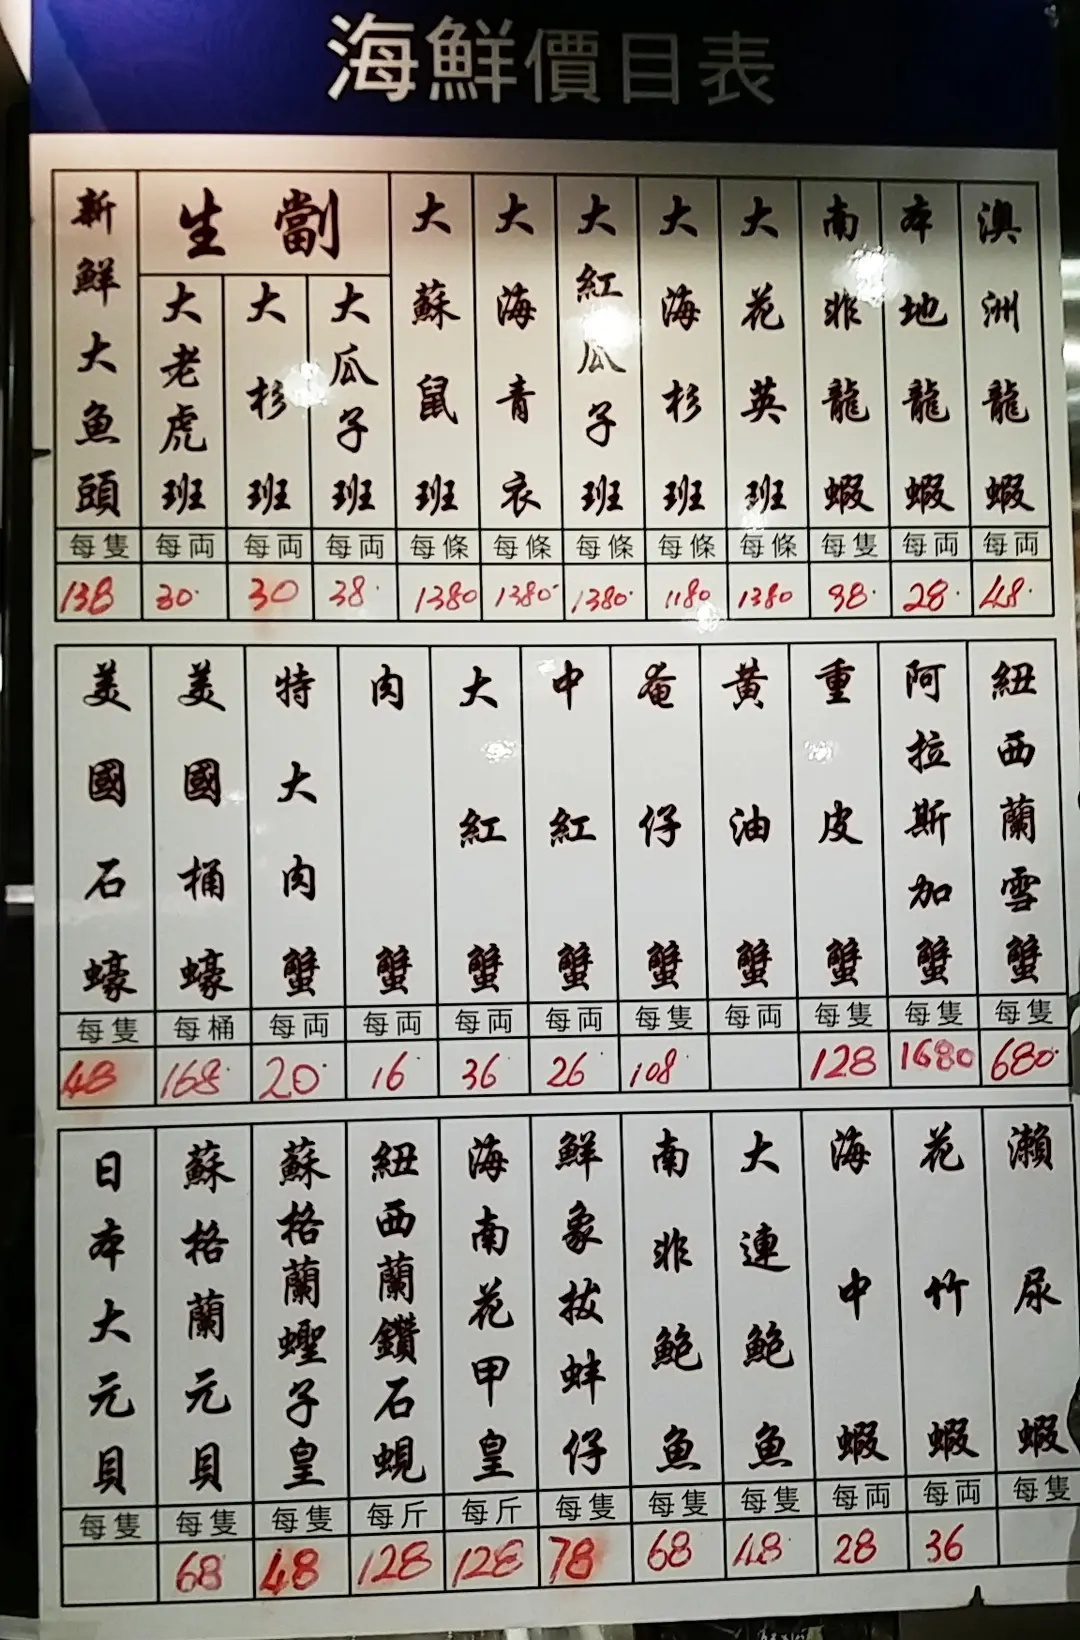 海鮮價目表
澳洲龍蝦
每両
48
本地龍蝦
每両
28
南非龍蝦
每隻
98
大花英班
每條
1380
大海杉班
每條
1180
大紅瓜子班
每條
1380
大海青衣
每條
1380
大蘇鼠班
每條
1380
生劏
大瓜子班
每両
38
大杉班
每両
30
大老虎班
每両
30
新鮮大魚頭
每隻
138
紐西蘭雪蟹
每隻
680
阿拉斯加蟹
每隻
1680
重皮蟹
每隻
128
黃油蟹
每両
奄仔蟹
每隻
108
中紅蟹
每両
26
大紅蟹
每両
36
肉蟹
每両
16
特大肉蟹
每両
20
美國桶蠔
每桶
168
美國石蠔
每隻
48
瀨尿蝦
每隻
花竹蝦
每両
36
海中蝦
每両
28
大連鮑魚
每隻
48
南非鮑魚
每隻
68
鮮象拔蚌仔
每隻
78
海南花甲皇
每斤
128
紐西蘭鑽石蜆
每斤
128
蘇格蘭蟶子皇
每隻
48
蘇格蘭元貝
每隻
68
日本大元貝
每隻